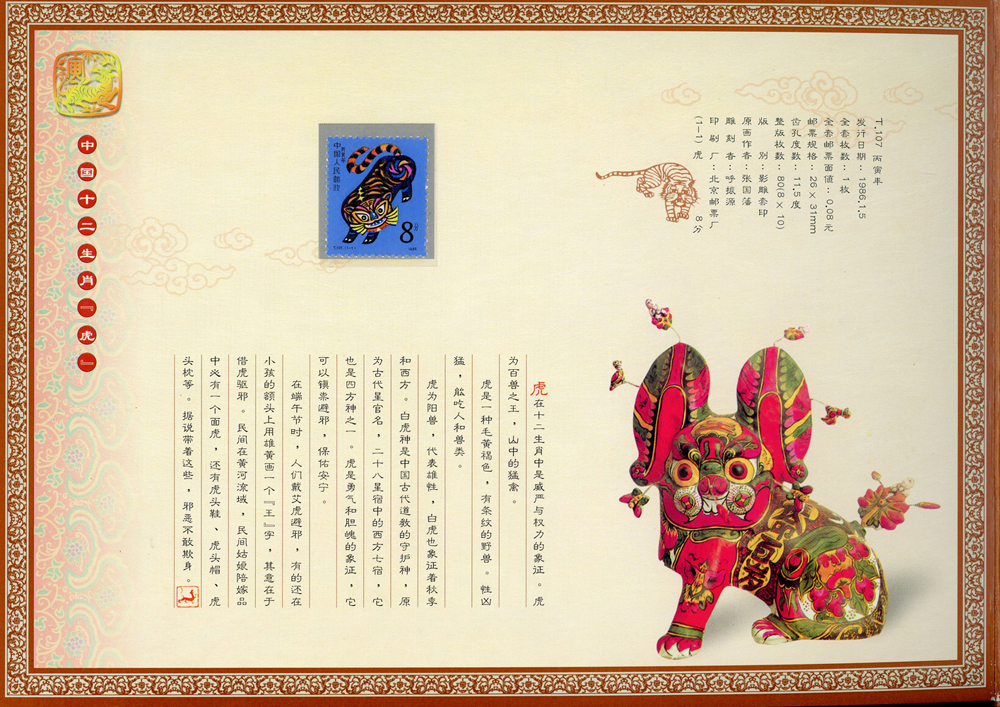 中国十二生肖『虎』
T.107 丙寅年
发行日期：1986.1.5
全套枚数：1枚
全套邮票面值：0.08元
邮票规格：26×31mm
齿孔度数：11.5度
整版枚数：80(8×10)
版 别：影雕套印
原画作者：张国藩
雕刻者：呼振源
印刷厂：北京邮票厂
(1-1) 虎 8分
丙寅年
中国人民邮政
8分
T.107.(1-1)
1986
虎在十二生肖中是威严与权力的象征。虎
为百兽之王，山中的猛禽。
虎是一种毛黄褐色，有条纹的野兽。性凶
猛，能吃人和兽类。
虎为阳兽，代表雄性，白虎也象征着秋季
和西方。白虎神是中国古代道教的守护神，原
为古代星官名，二十八星宿中的西方七宿，它
也是四方神之一。虎是勇气和胆魄的象征，它
可以镇祟避邪，保佑安宁。
在端午节时，人们戴艾虎避邪，有的还在
小孩的额头上用雄黄画一个『王』字，其意在于
借虎驱邪。民间在黄河流域，民间姑娘陪嫁品
中必有一个面虎，还有虎头鞋、虎头帽、虎
头枕等。据说带着这些，邪恶不敢欺身。